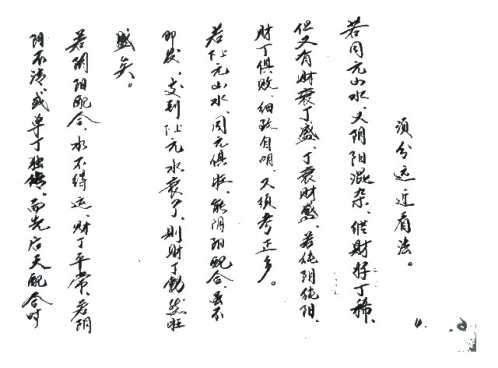 须分远近看法。
若同元山水、又阴阳混杂、纵财好丁稀、
但又有财衰丁盛、丁衰财盛、若纯阴纯阳、
财丁俱败、细致自明、久须考正多。
若上元山水、同元俱收、能阴阳配合虽不
即发、交到上元水衰了、则财丁勃然旺
盛矣。
若阴阳配合、水不得运、财丁平常、若阴
阴不清或单丁独传、而先后天配合时